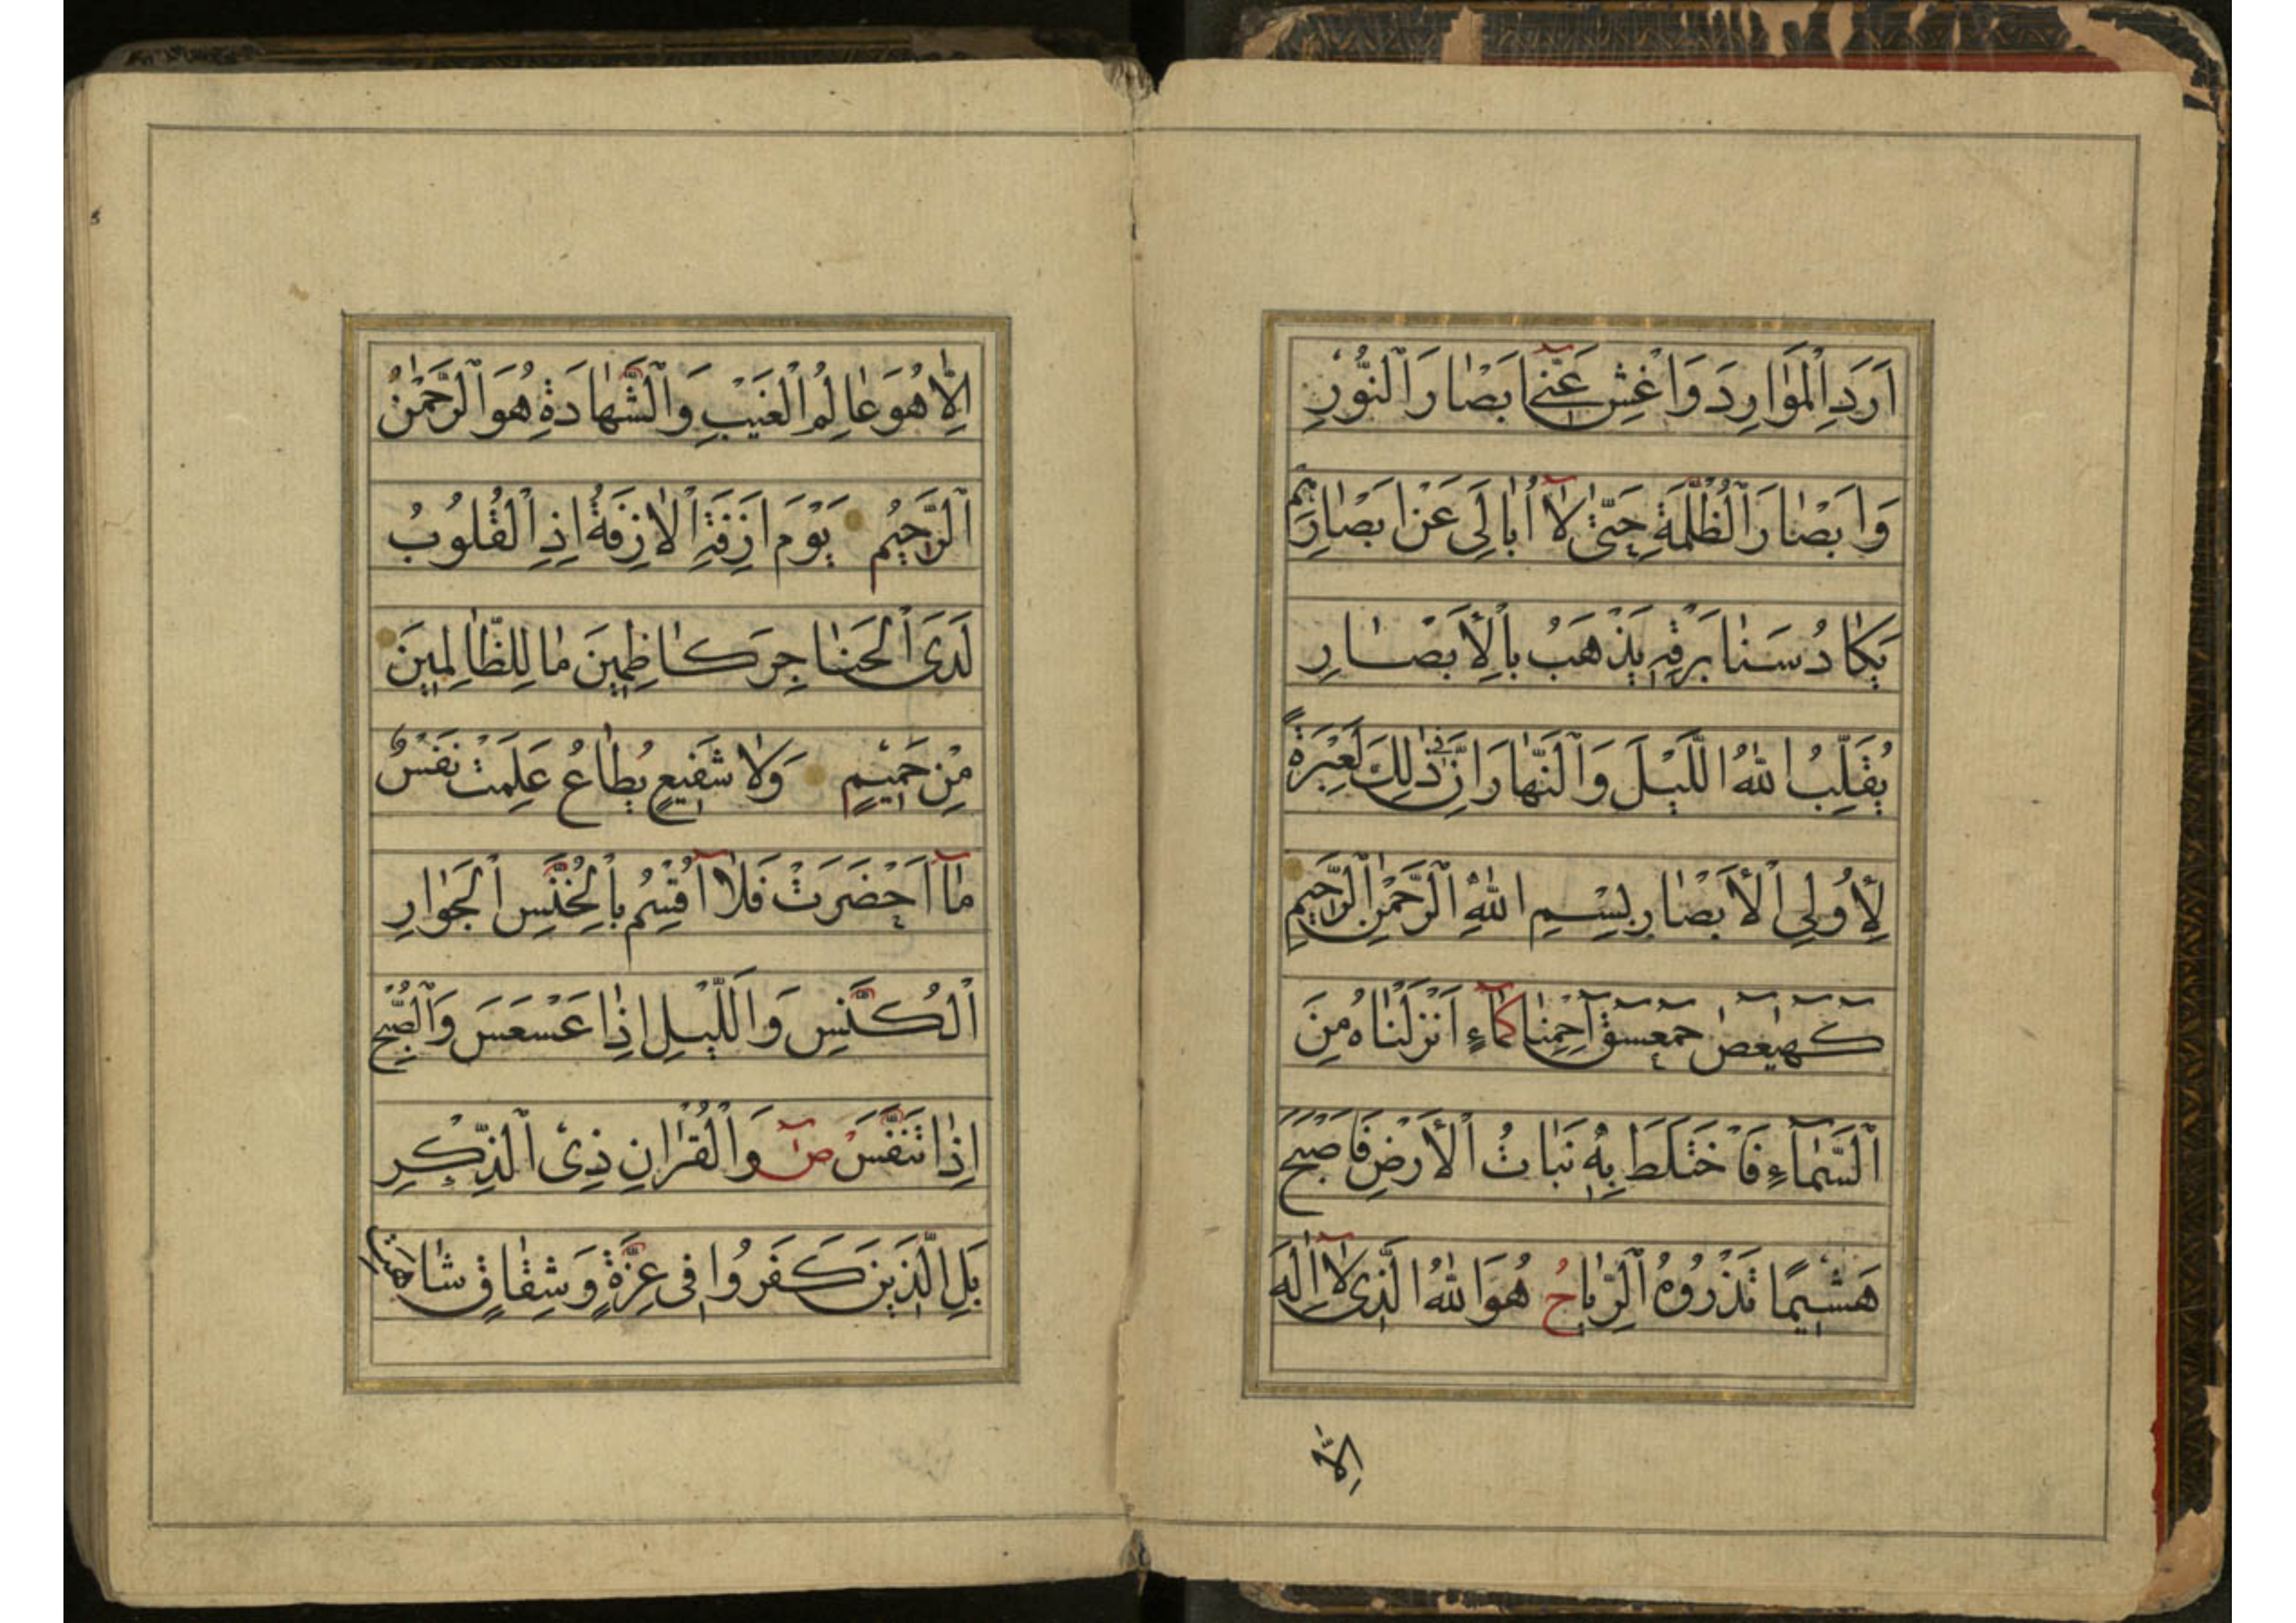 اَرَدَ الْمَوٰارِدَ وَاغْشِ عَنّٓي اَبْصٰارَ النُّورِ
وَاَبْصٰارَ الظُّلْمَةِ حَتّٰى لآٰ اُبٰالِىَ عَنْ اَبْصٰارِهِمْ
يَكٰادُ سَنٰا بَرْقِهٖ يَذْهَبُ بِالْأَبْصٰارِ
يُقَلِّبُ اللّٰهُ اللَّيْلَ وَالنَّهٰارَ اِنَّ فٖى ذٰلِكَ لَعِبْرَةً
لِأُولِي الْأَبْصٰارِ بِسْمِ اللّٰهِ الرَّحْمٰنِ الرَّحٖيمِ
كٓهٰيٰعٓصٓ حٰمٓعٓسٓقٓ اَحْمِنٰا كَمٰٓاءٍ اَنْزَلْنٰاهُ مِنَ
السَّمٰٓاءِ فَاخْتَلَطَ بِهٖ نَبٰاتُ الْأَرْضِ فَاَصْبَحَ
هَشٖيمًا تَذْرُوهُ الرِّيٰاحُ هُوَ اللّٰهُ الَّذٖى لآٰ اِلٰهَ
اِلّاٰ
اِلّاٰ هُوَ عٰالِمُ الْغَيْبِ وَالشَّهٰادَةِ هُوَ الرَّحْمٰنُ
الرَّحٖيمُ يَوْمَ اَزِفَةِ الْاٰزِفَةُ اِذِ الْقُلُوبُ
لَدَى الْحَنٰاجِرِ كٰاظِمٖينَ مٰا لِلظّٰالِمٖينَ
مِنْ حَمٖيمٍ وَلاٰ شَفٖيعٍ يُطٰاعُ عَلِمَتْ نَفْسٌ
مٰٓا اَحْضَرَتْ فَلآٰ اُقْسِمُ بِالْخُنَّسِ الْجَوٰارِ
الْكُنَّسِ وَاللَّيْلِ اِذٰا عَسْعَسَ وَالصُّبْحِ
اِذٰا تَنَفَّسَ صٓ وَالْقُرْاٰنِ ذِى الذِّكْرِ
بَلِ الَّذٖينَ كَفَرُوا فٖى عِزَّةٍ وَشِقٰاقٍ شٰاهَتِ